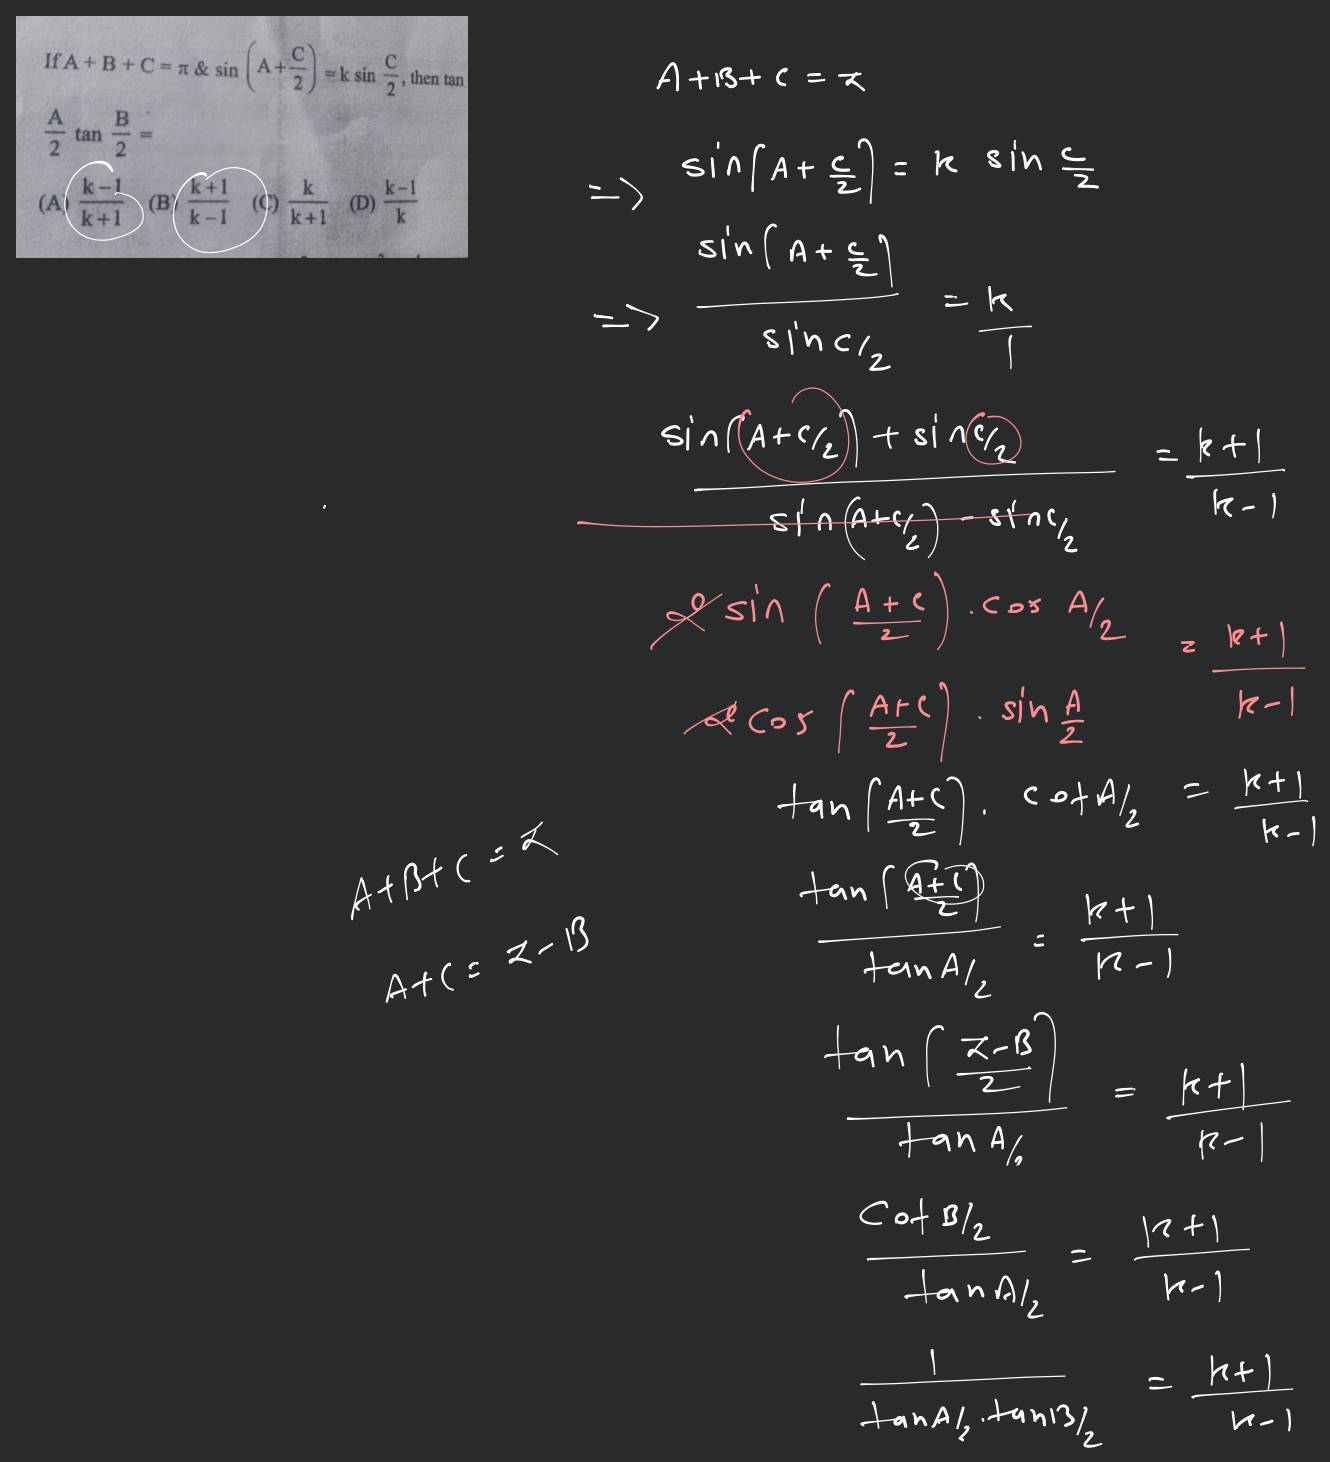 If A + B + C = π & sin (A + C/2) = k sin C/2, then tan
A/2 tan B/2 =
(A) k-1/k+1 (B) k+1/k-1 (C) k/k+1 (D) k-1/k
A+B+C = π
=> sin(A + C/2) = k sin C/2
=> sin(A + C/2) / sin C/2 = k/1
sin(A+C/2) + sin C/2 / sin(A+C/2) - sin C/2 = k+1/k-1
2 sin (A+C/2) . cos A/2 / 2 cos (A+C/2) . sin A/2 = k+1/k-1
tan (A+C/2) . cot A/2 = k+1/k-1
tan (A+C/2) / tan A/2 = k+1/k-1
A+B+C = π
A+C = π-B
tan (π-B/2) / tan A/2 = k+1/k-1
cot B/2 / tan A/2 = k+1/k-1
1 / tan A/2 . tan B/2 = k+1/k-1